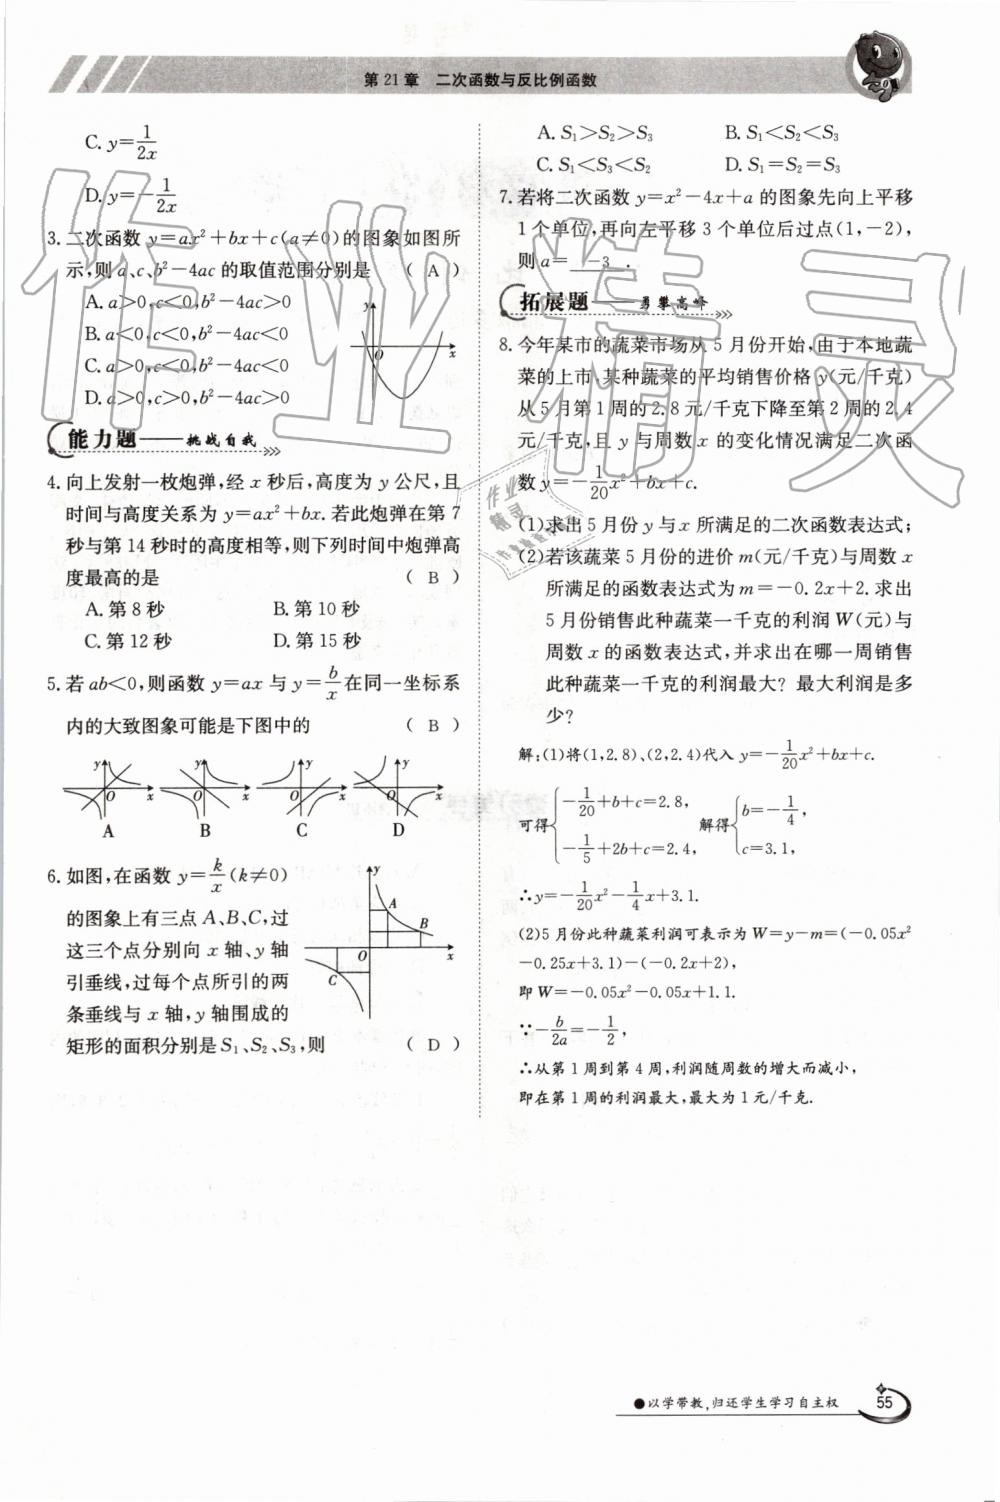 第21章　二次函数与反比例函数
C. y=1/(2x)
D. y=-1/(2x)
3. 二次函数 y=ax²+bx+c(a≠0)的图象如图所
示,则 a、c、b²-4ac 的取值范围分别是　( A )
A. a>0,c<0,b²-4ac>0
B. a<0,c<0,b²-4ac<0
C. a>0,c<0,b²-4ac<0
D. a>0,c>0,b²-4ac>0
y
O
x
能力题——挑战自我
4. 向上发射一枚炮弹,经 x 秒后,高度为 y 公尺,且
时间与高度关系为 y=ax²+bx. 若此炮弹在第 7
秒与第 14 秒时的高度相等,则下列时间中炮弹高
度最高的是　( B )
A. 第 8 秒　B. 第 10 秒
C. 第 12 秒　D. 第 15 秒
5. 若 ab<0,则函数 y=ax 与 y=b/x 在同一坐标系
内的大致图象可能是下图中的　( B )
y y y y
O x O x O x O x
A B C D
6. 如图,在函数 y=k/x (k≠0)
的图象上有三点 A、B、C,过
这三个点分别向 x 轴、y 轴
引垂线,过每个点所引的两
条垂线与 x 轴,y 轴围成的
矩形的面积分别是 S₁、S₂、S₃,则　( D )
y
A
B
O
x
C
A. S₁>S₂>S₃　B. S₁<S₂<S₃
C. S₁<S₃<S₂　D. S₁=S₂=S₃
7. 若将二次函数 y=x²-4x+a 的图象先向上平移
1 个单位,再向左平移 3 个单位后过点(1,-2),
则 a= -3 .
拓展题——勇攀高峰
8. 今年某市的蔬菜市场从 5 月份开始,由于本地蔬
菜的上市,某种蔬菜的平均销售价格 y(元/千克)
从 5 月第 1 周的 2.8 元/千克下降至第 2 周的 2.4
元/千克,且 y 与周数 x 的变化情况满足二次函
数 y=-1/20x²+bx+c.
(1)求出 5 月份 y 与 x 所满足的二次函数表达式;
(2)若该蔬菜 5 月份的进价 m(元/千克)与周数 x
所满足的函数表达式为 m=-0.2x+2. 求出
5 月份销售此种蔬菜一千克的利润 W(元)与
周数 x 的函数表达式,并求出在哪一周销售
此种蔬菜一千克的利润最大? 最大利润是多
少?
解:(1)将(1,2.8)、(2,2.4)代入 y=-1/20x²+bx+c.
可得{-1/20+b+c=2.8, -1/5+2b+c=2.4, 解得{b=-1/4, c=3.1,
∴y=-1/20x²-1/4x+3.1.
(2)5 月份此种蔬菜利润可表示为 W=y-m=(-0.05x²
-0.25x+3.1)-(-0.2x+2),
即 W=-0.05x²-0.05x+1.1.
∵-b/2a=-1/2,
∴从第 1 周到第 4 周,利润随周数的增大而减小,
即在第 1 周的利润最大,最大为 1 元/千克.
作业精灵
作业
精灵
●以学带教,归还学生学习自主权
55